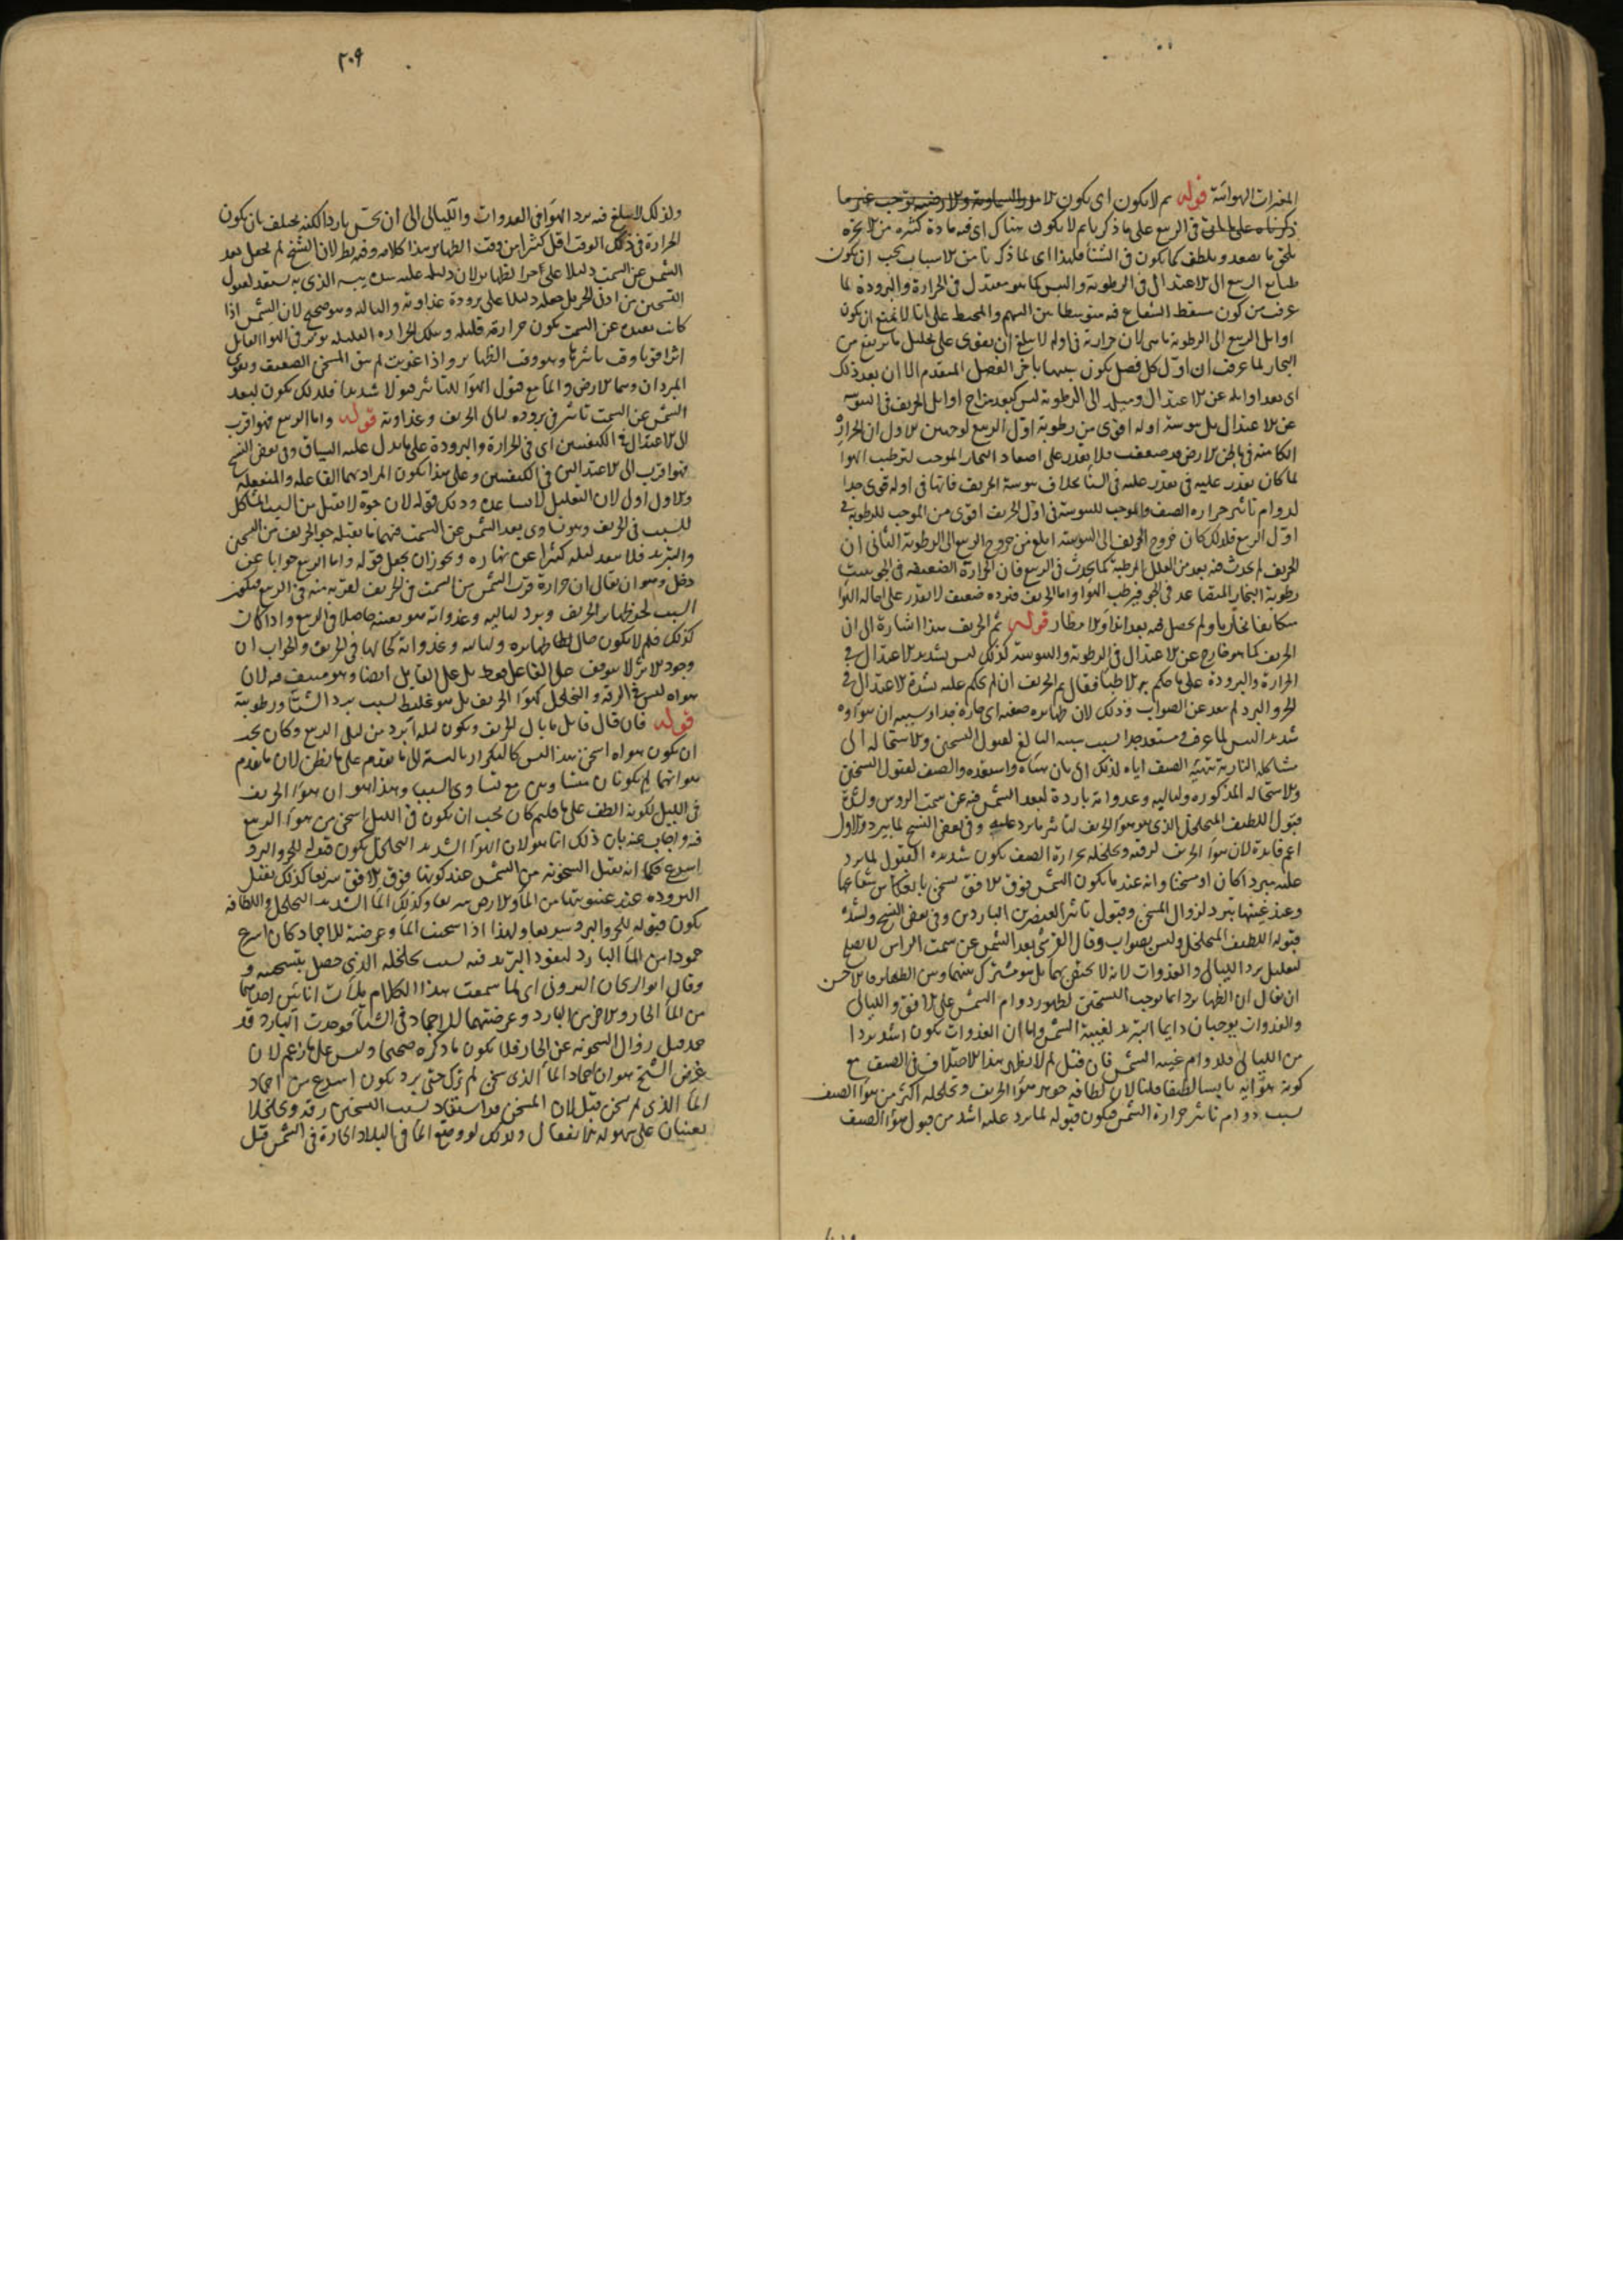 المغيرات الهوائية قوله ثم لا يكون اى يكون الامور السماوية والارضية توجب غير ما
ذكرناه على المعنى فى الربيع على ما ذكرنا ثم لا يكون هناك اى فيه مادة كثيرة من الابخرة
ما يصعد ويلطف كما يكون فى الشتا فلهذا اى لما ذكرنا من الاسباب يجب ان يكون
طباع الربيع الى الاعتدال فى الرطوبة واليبس كما هو معتدل فى الحرارة والبرودة لما
عرف من كون مسقط الشعاع فيه متوسطا بين السهم والمحيط على انا لا نمنع ان يكون
اوايل الربيع الى الرطوبة ما هى لان حرارته فى اوله لا يبلغ ان يقوى على تحليل ما يرتفع من
البخار لما عرف ان اول كل فصل يكون شبيها باخر الفصل المتقدم الا ان بعد ذلك
اى بعد اوايله عن الاعتدال وميله الى الرطوبة ليس كبعد مزاج اوايل الخريف فى اليبوسة
عن الاعتدال بل يبوسة اوله اقوى من رطوبة اول الربيع لوجهين الاول ان الحرارة
الكامنة فى باطن الارض قد ضعفت فلا يقدر على اصعاد البخار الموجب لترطيب الهوا
لما كان يقدر عليه فى الشتا بخلاف يبوسة الخريف فانها فى اوله قوى جدا
لدوام تاثير حراره الصيف والموجب لليبوسة فى اول الخريف اقوى من الموجب للرطوبة فى
اول الربيع فلذلك كان خروج الخريف الى اليبوسة ابلغ من خروج الربيع الى الرطوبة الثانى ان
الخريف لم يحدث فيه بعد من العلل المرطبة كما يحدث فى الربيع فان الحرارة الضعيفة فى الجو يثبت
رطوبة البخار المتصاعد فى الجو فيرطب الهوا واما الخريف فبرده ضعيف لا يقدر على احالة الهوا
متكاثفا بخاريا ولم يحصل فيه بعد اندا والامطار قوله ثم الخريف هذا اشارة الى ان
الخريف كما هو خارج عن الاعتدال فى الرطوبة واليبوسة كذلك ليس بشديد الاعتدال فى
الحرارة والبرودة على ما حكم به الاطبا فقال ثم الخريف ان لم يحكم عليه بشدة الاعتدال فى
الحر والبرد لم يبعد عن الصواب وذلك لان ظهايره صيفية اى حارة جدا وسببه ان هواوه
شديد اليبس لما عرف ومستعد جدا بسبب يبسه البالغ لقبول التسخين والاستحالة الى
مشاكلة النارية بتهيئة الصيف اياه لذلك اى بان هياه واستعده والصيف لقبول التسخين
والاستحالة المذكوره ولياليه وغدواته باردة لبعد الشمس فيه عن سمت الروس ولشدة
قبول اللطيف المتخلخل الذى هو هوا الخريف لتاثير ما يرد عليه وفى بعض النسخ لما يبرد والاول
اعم فايدة لان هوا الخريف لرقته وتخلخله بحرارة الصيف يكون شديد القبول لما يرد
عليه مبردا كان او مسخنا وانه عند ما يكون الشمس فوق الافق تسخن بانعكاس شعاعها
وعند غيبتها تبرد لزوال المسخن وقبول تاثير العنصرين الباردين وفى بعض النسخ ولشدة
قبوله اللطيف المتخلخل وليس بصواب وقال القرشى بعد الشمس عن سمت الراس لا يصلح
لتعليل برد الليالى والغدوات لانه لا يختص بهما بل هو مشترك بينهما وبين الظهاير فالاحسن
ان يقال ان الظهاير دايما توجب التسخين لظهور دوام الشمس على الافق والليالى
والغدوات يوجبان دايما التبريد لغيبة الشمس واما ان الغدوات يكون اشد بردا
من الليالى فلدوام غيبة الشمس فان قيل لم لا يظهر هذا الاختلاف فى الصيف مع
كونه هوائه يابسا لطيفا قلنا لان لطافة جوهر هوا الخريف وتخلخله اكثر من هوا الصيف
بسبب دوام تاثير حرارة الشمس فيكون قبوله لما يرد عليه اشد من قبول هوا الصيف
٢٠٩
ولذلك لا يبلغ فيه برد الهوا فى الغدوات والليالى الى ان يحس باردا لكنه يختلف بان يكون
الحرارة فى ذلك الوقت اقل كثيرا من وقت الظهاير هذا كلامه وفيه نظر لان الشيخ لم يجعل بعد
الشمس عن السمت دليلا على حر الظهاير لان دليله عليه شدة يبسه الذى به يستعد لقبول
التسخين من ادنى الحر بل جعله دليلا على برودة غداوته ولياليه وهو صحيح لان الشمس اذا
كانت بعيدة عن السمت يكون حرارته قليلة وتلك الحراره القليلة يوثر فى الهوا القابل
اثرا قويا وقت تاثيرها وهو وقت الظهاير واذا غربت لم يبق المسخن الضعيف ويقوى
المبردان وهما الارض والما مع قبول الهوا للتاثير قبولا شديدا فلذلك يكون لبعد
الشمس عن السمت تاثير فى برودة ليالى الخريف وغداوته قوله واما الربيع فهو اقرب
الى الاعتدال فى الكيفيتين اى فى الحرارة والبرودة على ما يدل عليه السياق وفى بعض النسخ
فهو اقرب الى الاعتدالين فى الكيفيتين وعلى هذا يكون المراد بهما الفاعلة والمنفعلة
والاول اولى لان التعليل لا يساعده وذلك قوله لان جوه لا يقبل من السبب المشاكل
للسبب فى الخريف وهو تساوى بعد الشمس عن السمت فيهما ما يقبله جو الخريف من التسخين
والتبريد فلا يبعد ليله كثيرا عن نهاره ويجوز ان يجعل قوله واما الربيع جوابا عن
دخل وهو ان يقال ان حرارة قرب الشمس من السمت فى الخريف لقربه منه فى الربيع فيكون
السبب لحر ظهاير الخريف وبرد لياليه وغدواته هو بعينه حاصلا فى الربيع واذا كان
كذلك فلم لا يكون حال ظهايره ولياليه وغدواته كحالها فى الخريف والجواب ان
وجود الاثر لا يتوقف على الفاعل فقط بل على القابل ايضا وهو منتف فيه لان
هواه ليس فى الرقة والتخلخل كهوا الخريف بل هو غليظ بسبب برد الشتا ورطوبته
قوله فان قال قايل ما بال الخريف ويكون ليله ابرد من ليل الربيع وكان يجب
ان يكون هواه اسخن هذا ليس كالتكرار بالنسبة الى ما تقدم على ما يظن لان ما تقدم
هوانهما لم يكونان متساويين مع تساوى السبب وهذا هو ان هوا الخريف
فى الليل لكونه الطف على ما قلتم كان يجب ان يكون فى الليل اسخن من هوا الربيع
فيه واجاب عنه بان ذلك انما هو لان الهوا الشديد التخلخل يكون قبوله للحر والبرد
اسرع فكما انه يقبل السخونة من الشمس عند كونها فوق الافق سريعا كذلك يقبل
البرودة عند غيبوبتها من الما والارض سريعا وكذلك الما الشديد التخلخل واللطافة
يكون قبوله للحر والبرد سريعا ولهذا اذا سخنت الما وعرضته للاجماد كان اسرع
جمودا من الما البارد لنفوذ التبريد فيه بسبب تخلخله الذى حصل بتسخينه و
وقال ابو الريحان البيرونى اى لما سمعت هذا الكلام ملات انايين احدهما
من الما الحار والاخر من البارد وعرضتهما للاجماد فى الشتا فوجدت البارد قد
جمد قبل زوال السخونة عن الحار فلا يكون ما ذكره صحيحا وليس على ما زعم لان
غرض الشيخ هو ان اجماد الما الذى سخن ثم ترك حتى برد يكون اسرع من اجماد
الما الذى لم يسخن قبل لان المسخن قد استفاد بسبب التسخين رقة وتخلخلا
يعينان على سهولة الانفعال ولذلك لو وضع الما فى البلاد الحارة فى الشمس قبل